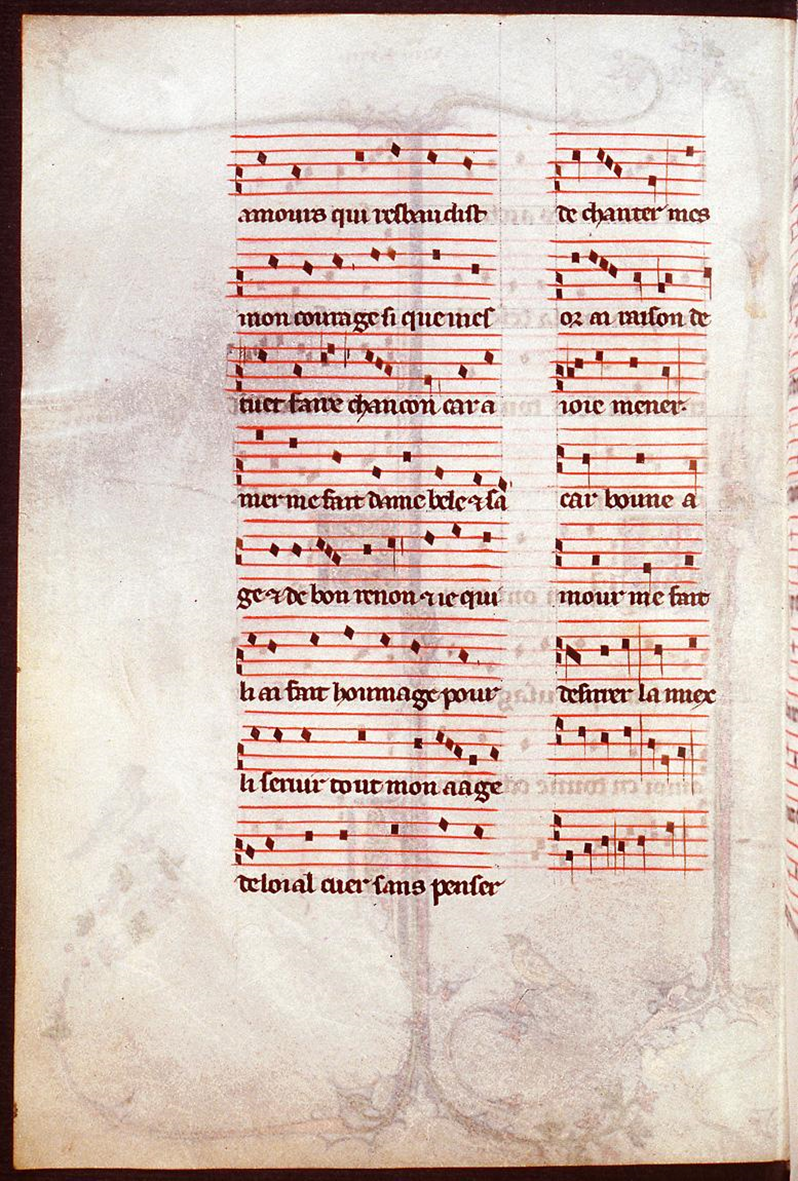 amours qui resbaudist
mon courage si que mes
tuet faire chancon car a
mer me fait dame bele ⁊ sa
ge ⁊ de bon renon ⁊ ie qui
li ai fait hommage pour
li seruir tout mon aage
de loial cuer sans penser
de chanter mes
or ai raison de
ioie mener.
car bonne a
mour me fait
desirrer la miex